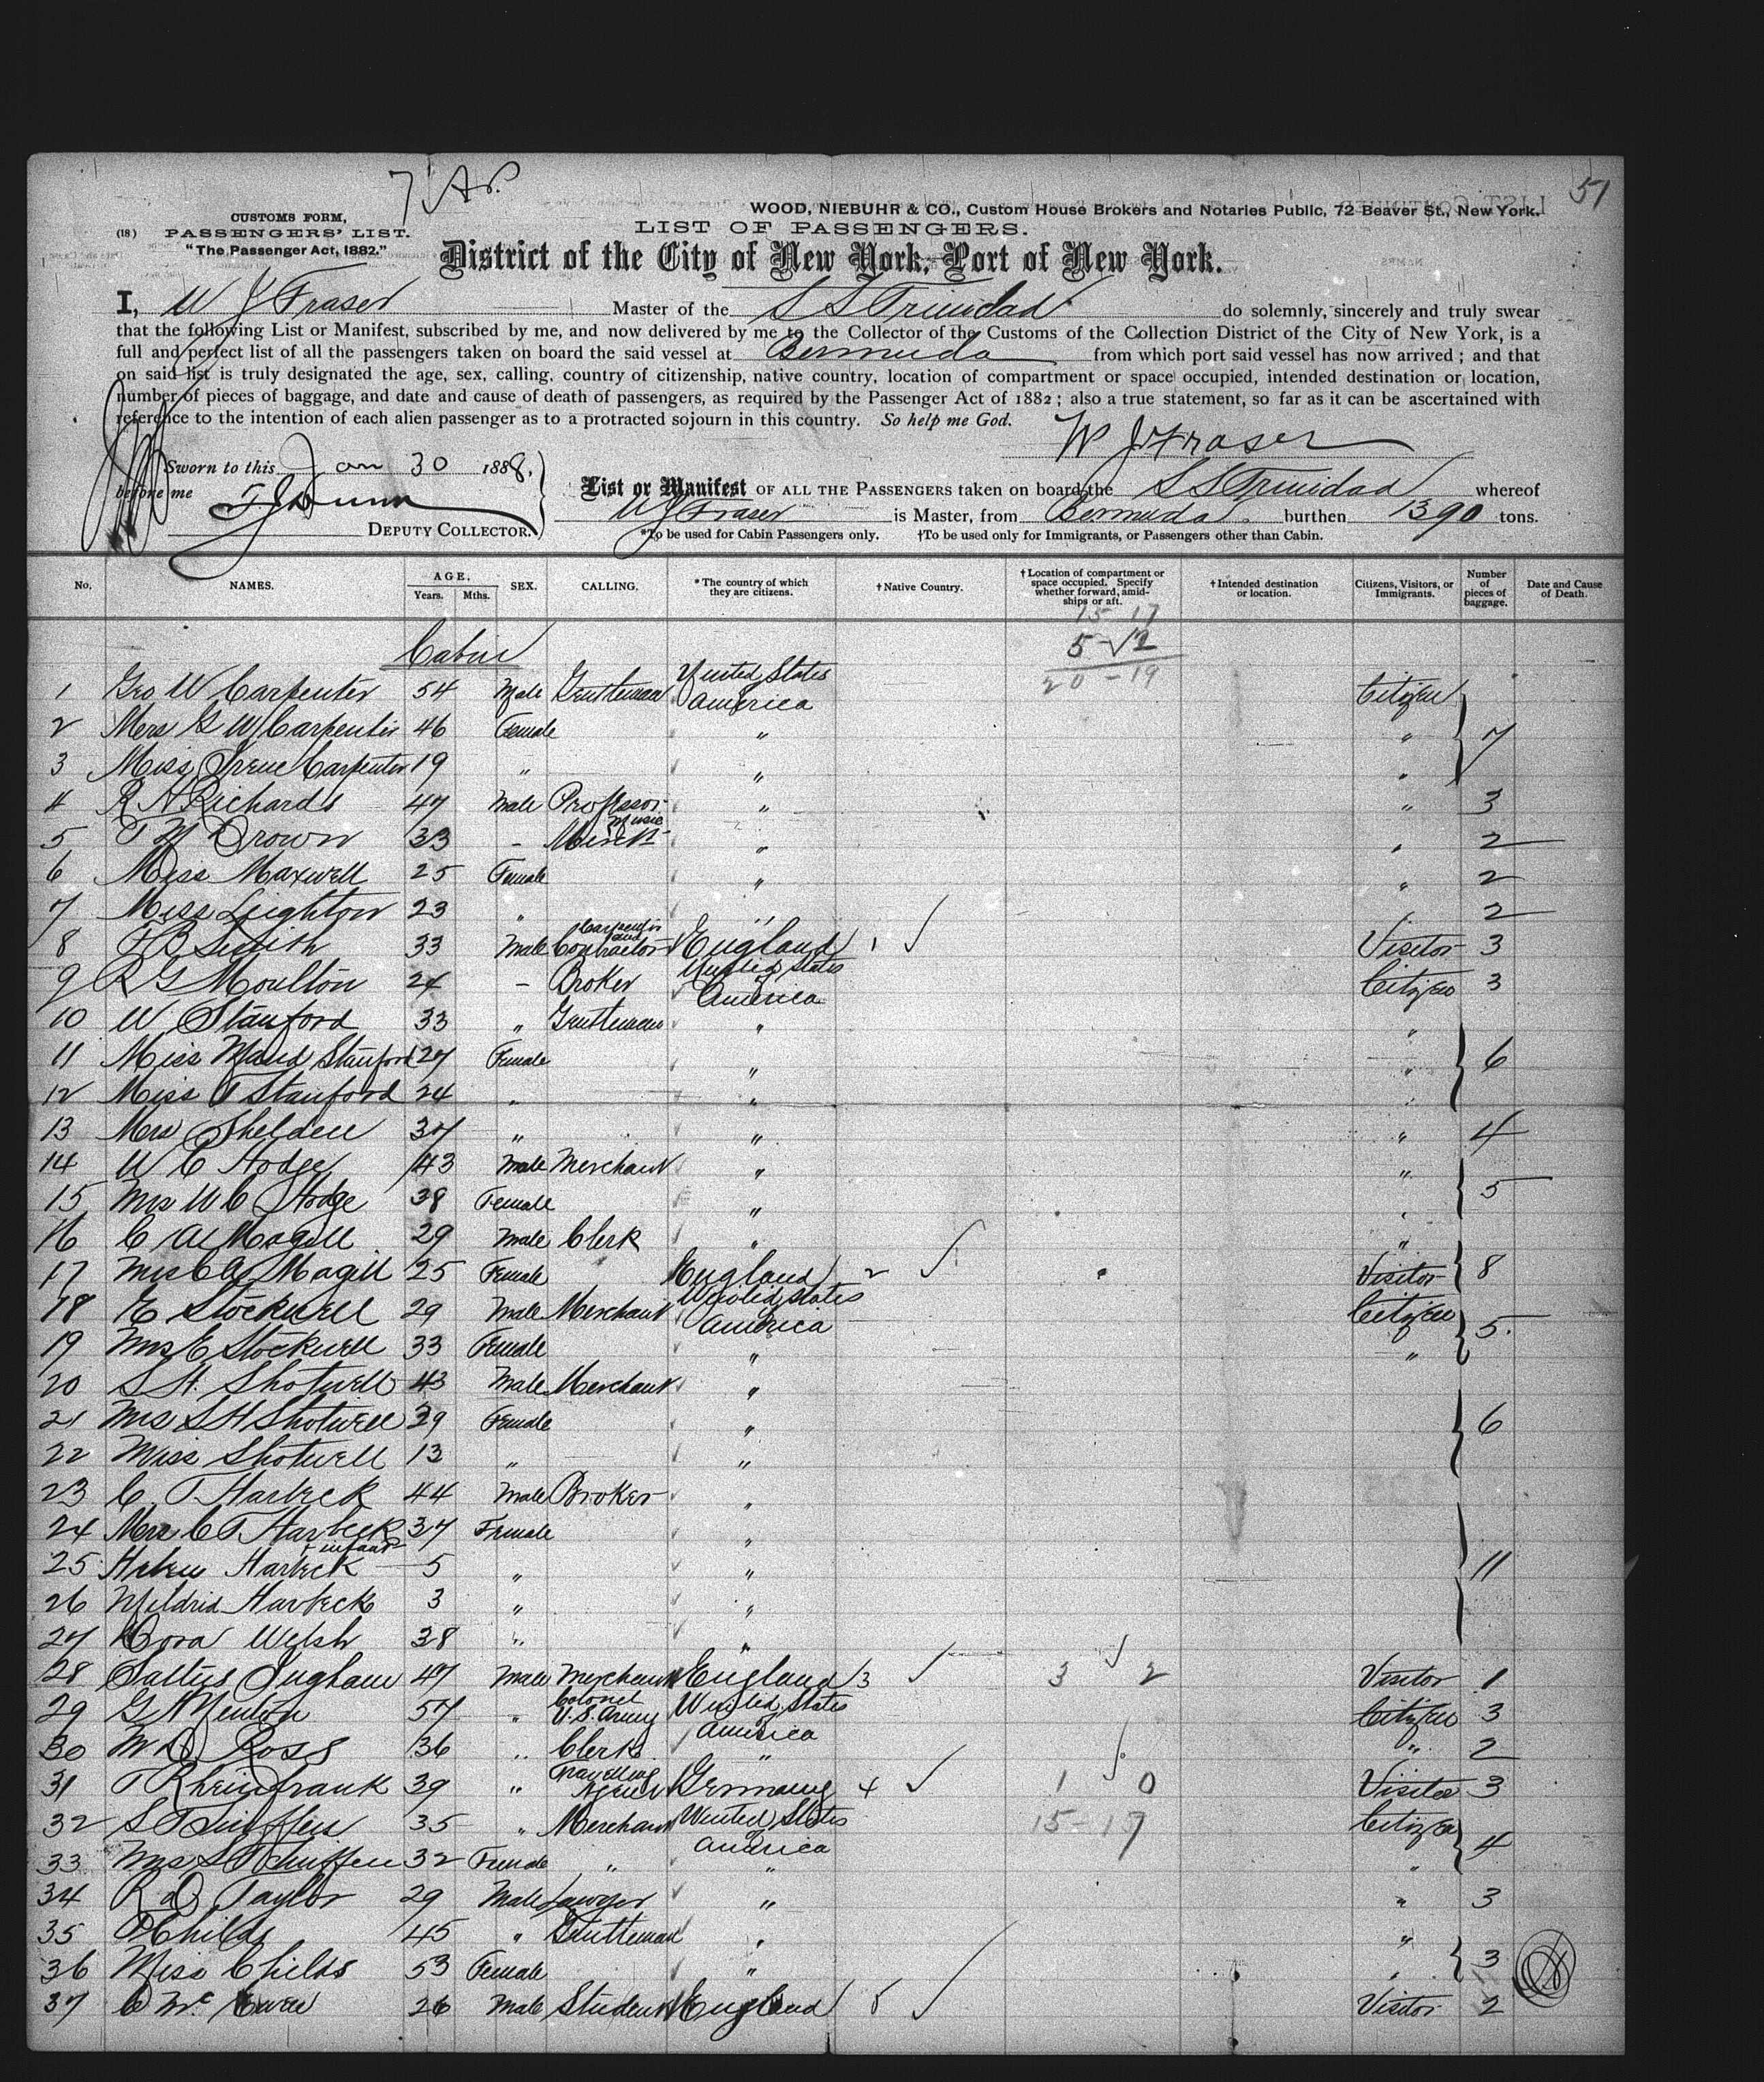 7 Ap.
51
WOOD, NIEBUHR & CO., Custom House Brokers and Notaries Public, 72 Beaver St., New York.
CUSTOMS FORM,
(18) PASSENGERS' LIST.
"The Passenger Act, 1882."
LIST OF PASSENGERS.
District of the City of New York, Port of New York.
I, W J Fraser Master of the S S Trinidad do solemnly, sincerely and truly swear
that the following List or Manifest, subscribed by me, and now delivered by me to the Collector of the Customs of the Collection District of the City of New York, is a
full and perfect list of all the passengers taken on board the said vessel at Bermuda from which port said vessel has now arrived; and that
on said list is truly designated the age, sex, calling, country of citizenship, native country, location of compartment or space occupied, intended destination or location,
number of pieces of baggage, and date and cause of death of passengers, as required by the Passenger Act of 1882; also a true statement, so far as it can be ascertained with
reference to the intention of each alien passenger as to a protracted sojourn in this country. So help me God.
W J Fraser
Sworn to this Jan 30 1888,
before me T J Dunn
DEPUTY COLLECTOR.
List or Manifest OF ALL THE PASSENGERS taken on board the S S Trinidad whereof
W J Fraser is Master, from Bermuda burthen 1390 tons.
*To be used for Cabin Passengers only. †To be used only for Immigrants, or Passengers other than Cabin.
No. NAMES. AGE. Years. Mths. SEX. CALLING. * The country of which they are citizens. † Native Country. † Location of compartment or space occupied. Specify whether forward, amidships or aft. † Intended destination or location. Citizens, Visitors, or Immigrants. Number of pieces of baggage. Date and Cause of Death.
15 17
Cabin 5 - 2
20 - 19
1 Geo W Carpenter 54 Male Gentleman United States America Citizen
2 Mrs G W Carpenter 46 Female " " 7
3 Miss Irene Carpenter 19 " " "
4 R N Richards 47 Male Professor Music " " 3
5 T M Brown 33 - " " 2
6 Miss Maxwell 25 Female " " 2
7 Miss Leighton 23 " " " 2
8 F B Smith 33 Male Carpenter and Contractor England 1 Visitor 3
9 R G Moulton 24 - Broker United States America Citizen 3
10 W Stanford 33 " Gentleman " "
11 Miss Maud Stanford 27 Female " " 6
12 Miss T Stanford 24 " " "
13 Mrs Shelden 37 " " " 4
14 W C Hodge 43 Male Merchant " "
15 Mrs W C Hodge 38 Female " " 5
16 C A Magill 29 Male Clerk " "
17 Mrs C A Magill 25 Female England 2 Visitor 8
18 E Stockwell 29 Male Merchant United States America Citizen
19 Mrs E Stockwell 33 Female " " 5
20 S H Shotwell 43 Male Merchant "
21 Mrs S H Shotwell 39 Female " 6
22 Miss Shotwell 13 " "
23 C T Harbeck 44 Male Broker "
24 Mrs C T Harbeck 37 Female "
+ infant
25 Helen Harbeck 5 " " 11
26 Mildrid Harbeck 3 " "
27 Cora Welsh 38 " "
28 Saltus Ingham 47 Male Merchant England 3 3 2 Visitor 1
29 G H 57 " Colonel U.S. Army United States America Citizen 3
30 W D Ross 36 " Clerk " " 2
31 T Rheinfrank 39 " Travelling Agent Germany 4 1 0 Visitor 3
32 S T 35 " Merchant United States America 15 - 17 Citizen
33 Mrs S T 32 Female " " " 4
34 R D Taylor 29 Male Lawyer " " 3
35 Childs 45 " Gentleman " "
36 Miss Childs 53 Female " " 3
37 C Mc Ewen 26 Male Student England 5 Visitor 2